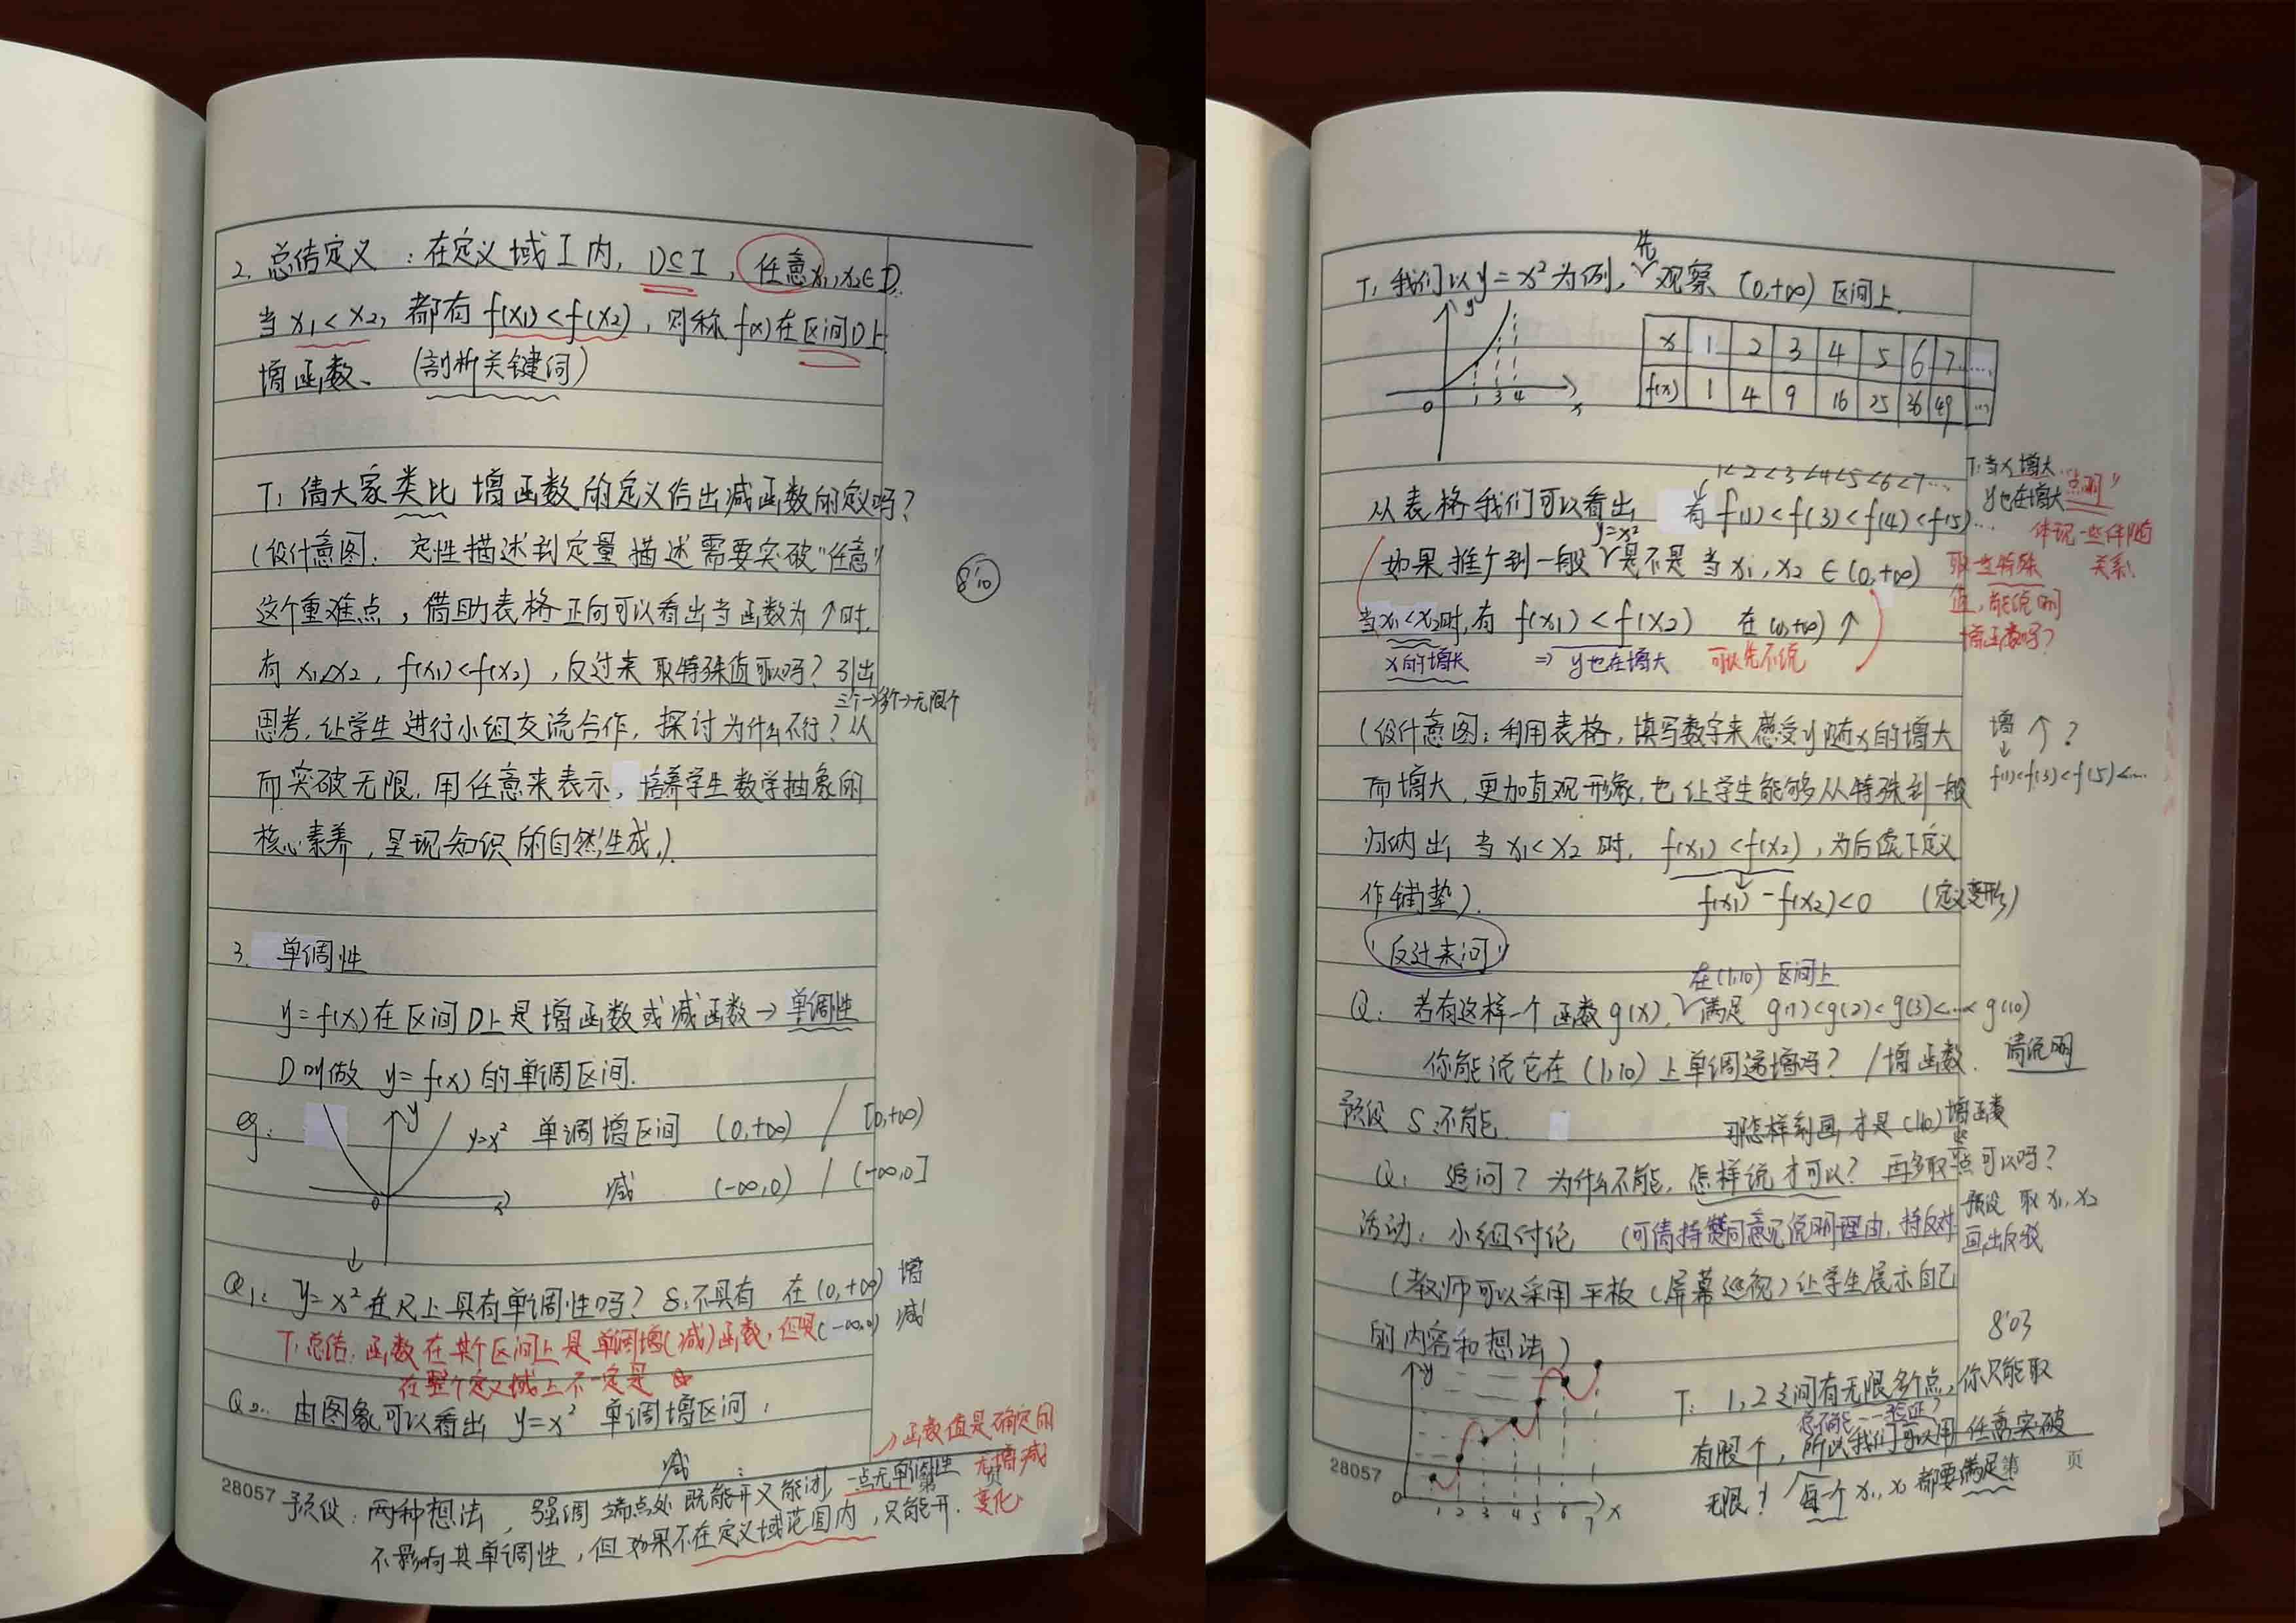 2. 总结定义：在定义域 I 内, D⊆I, 任意x₁,x₂∈D.
当 x₁<x₂, 都有 f(x₁)<f(x₂), 则称 f(x)在区间D上
增函数、 (剖析关键词)
T: 请大家类比 增函数的定义给出减函数的定义吗?
(设计意图: 定性描述到定量描述需要突破"任意"
这个重难点, 借助表格正向可以看出当函数为↑时,
有 x₁<x₂, f(x₁)<f(x₂), 反过来 取特殊值可以吗? 引出
三个→多个→无限个
思考, 让学生进行小组交流合作, 探讨为什么不行? 从
而突破无限, 用任意来表示, 培养学生数学抽象的
核心素养, 呈现知识的自然生成.)
8'10
3. 单调性
y=f(x)在区间 D上是增函数或减函数→单调性
D叫做 y=f(x)的单调区间.
eg: y y=x² 单调增区间 (0,+∞) / [0,+∞)
减 (-∞,0) / (-∞,0]
0 x
Q₁: y=x² 在R上具有单调性吗? S:不具有 在(0,+∞) 增
(-∞,0) 减
T:总结: 函数在某个区间上是单调增(减)函数, 但
在整个定义域上不一定是
Q₂: 由图象可以看出 y=x² 单调增区间:
减 :
函数值是确定的
无增减
变化
28057 第 页
预设: 两种想法, 强调 端点处 既能开又能闭, 一点无单调性
不影响其单调性, 但如果不在定义域范围内, 只能开.
先
T: 我们以y=x²为例, 观察 (0,+∞) 区间上.
y
0 1 3 4 x
x 1 2 3 4 5 6 7 ....
f(x) 1 4 9 16 25 36 49 ...
1<2<3<4<5<6<7...
从表格我们可以看出 有 f(1)<f(3)<f(4)<f(5)...
T:当x增大
y也在增大 "点明"
体现一些伴随
关系.
y=x²
如果推广到一般 是不是 当 x₁, x₂ ∈(0,+∞)
当x₁<x₂时, 有 f(x₁)<f(x₂) 在(0,+∞)↑
x的增长 ⇒ y也在增大 可以先不说
取一些特殊
值, 能说明
增函数吗?
(设计意图: 利用表格, 填写数字来感受y随x的增大
而增大, 更加直观形象, 也让学生能够从特殊到一般
归纳出, 当 x₁<x₂ 时, f(x₁)<f(x₂), 为后续下定义
作铺垫). f(x₁)-f(x₂)<0 (定义变形)
增 ↑ ?
f(1)<f(3)<f(5)<...
"反过来问"
在(1,10) 区间上
Q: 若有这样一个函数g(x), 满足 g(1)<g(2)<g(3)<...<g(10)
你能说它在(1,10)上单调递增吗? / 增函数. 请说明
预设 S:不能. 那怎样刻画, 才是(1,10)增函数
Q: 追问? 为什么不能, 怎样说才可以? 再多取点可以吗?
预设 取 x₁, x₂
活动: 小组讨论 (可请持同意说明理由, 持反对
画出反驳
(教师可以采用平板(屏幕巡视)让学生展示自己
的内容和想法)
8'03
y
0 1 2 3 4 5 6 7 x
T: 1,2之间有无限多个点, 你只能取
总不能一一验证?
有限个, 所以我们可以用任意突破
无限? 每一个 x₁, x₂ 都要满足
28057 第 页